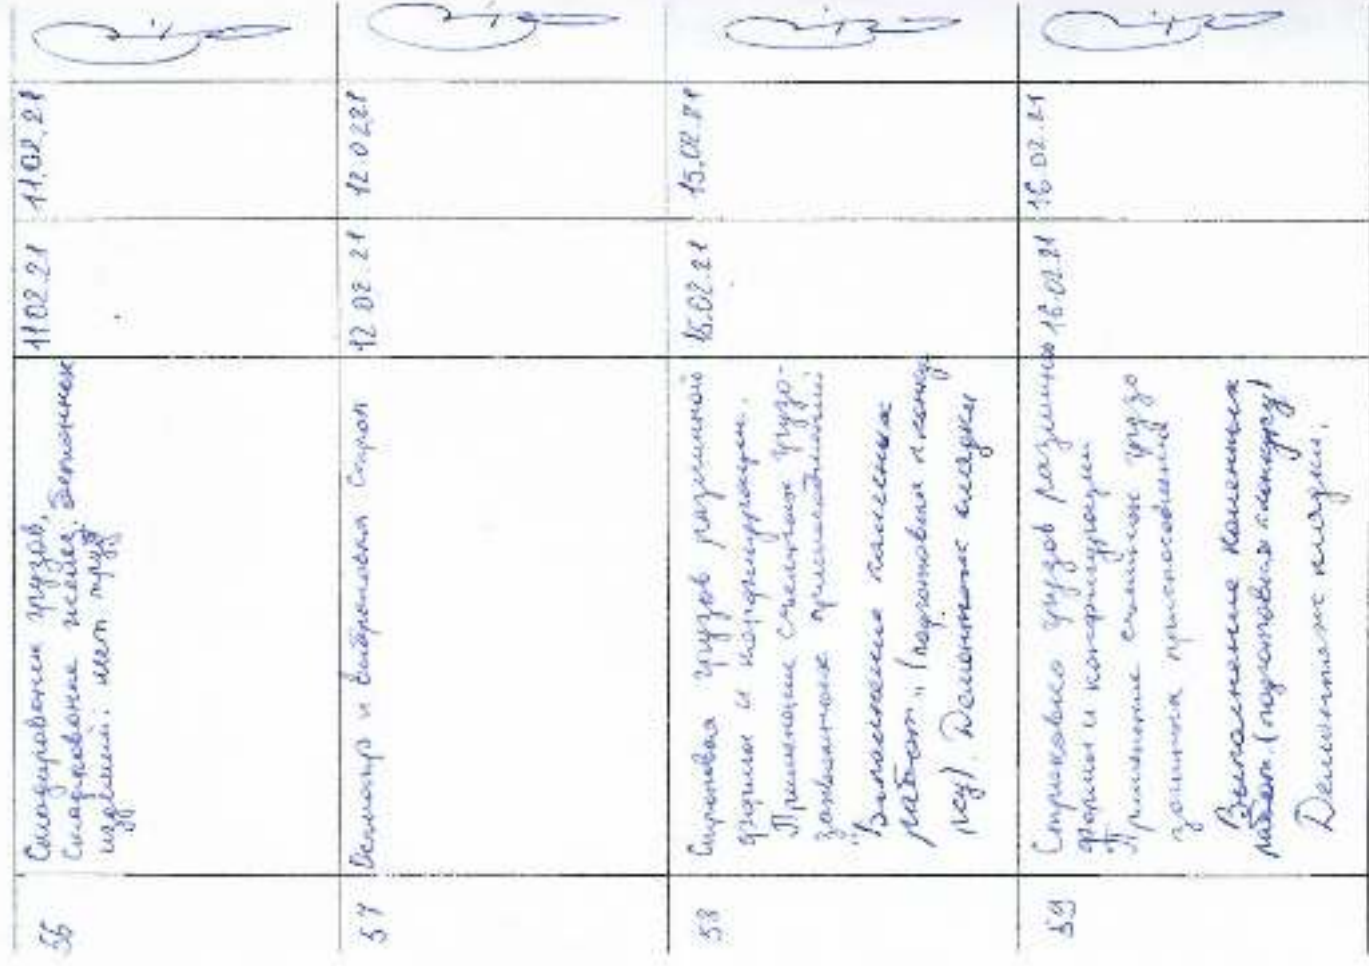 56
Складировани грузов,
Складировани железобетонных
изделий. мет. груз
11.02.21
11.02.21
57
Осмотр и выбраковка Строп
12.02.21
12.02.21
58
Строповка грузов различной
формы и конфигурации.
Применение съемных грузо-
захватных приспособлений
"Выполнение каменных
работ" (подготовка к конку
рсу). Демонтаж кладки
15.02.21
15.02.21
59
Строповка грузов различной
формы и конфигурации
Применение съемных грузо
приспособлений
Выполнение каменных
работ. (подготовка к конкурсу)
Демонтаж кладки.
16.02.21
16.02.21